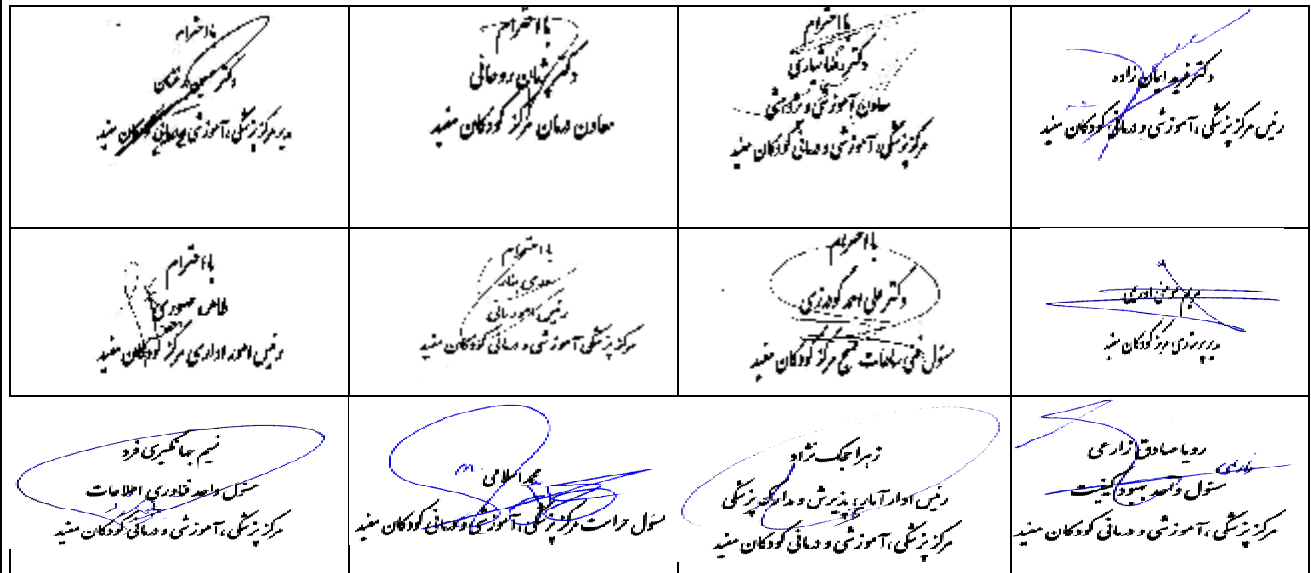 دکتر فرید ایمان زاده
رئیس مرکز پزشکی، آموزشی و درمانی کودکان مفید
با احترام
دکتر رضا شیاری
معاون آموزشی و پژوهشی
مرکز پزشکی، آموزشی و درمانی کودکان مفید
با احترام
دکتر پژمان روحانی
معاون درمان مرکز کودکان مفید
با احترام
دکتر حسین
مدیر مرکز پزشکی، آموزشی و درمانی کودکان مفید
مریم
مدیر پرستاری مرکز کودکان مفید
با احترام
دکتر علی احمد گودرزی
مسئول فنی ساعات صبح مرکز کودکان مفید
با احترام
رئیس امور مالی
مرکز پزشکی آموزشی و درمانی کودکان مفید
با احترام
رئیس امور اداری مرکز کودکان مفید
رویا صادق زارعی
مسئول واحد بهبود کیفیت
مرکز پزشکی، آموزشی و درمانی کودکان مفید
زهرا جک نژاد
رئیس اداره آمار، پذیرش و مدارک پزشکی
مرکز پزشکی، آموزشی و درمانی کودکان مفید
اسلامی
مسئول حراست مرکز پزشکی، آموزشی و درمانی کودکان مفید
نسیم جهانگیری فرد
مسئول واحد فناوری اطلاعات
مرکز پزشکی، آموزشی و درمانی کودکان مفید